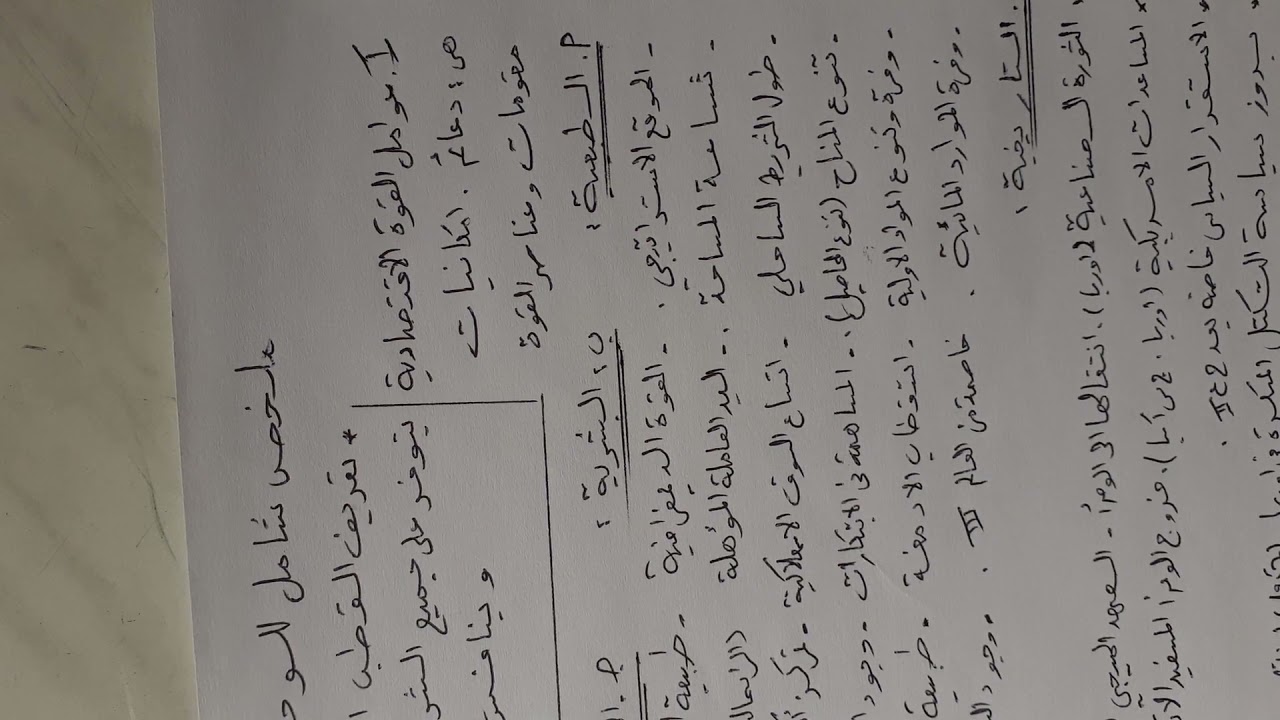 ملخص شامل للوحد
* تعريف القطب ا
I. عوامل القوة الاقتصادية
يتوفر على جميع الش
ص: دعائم. امكانيات
وينافس
مقومات وعناصر القوة
م. الطبيعية:
ب: البشرية:
- الموقع الاستراتيجي.
- القوة الديمغرافية
- طبيعة
- شساعة المساحة.
- اليد العاملة المؤهلة
- طول الشريط الساحلي
- اتساع السوق الاستهلاكية
- تنوع المناخ (تنوع المحاصيل).
- المساهمة في الابتكارات
- وجود
- وفرة وتنوع المواد الاولية
- استقطاب الادمغة
- طبيعة
- وفرة الموارد المائية.
خاصة من العالم III.
- وجود
التاريخية:
الثورة الصناعية (اوربا). انتقالها الى الوم أ - العهد الميجي
* المساعدات الامريكية (اوربا. ج ش آسيا). خروج الوم أ المستفيد
* الاستقرار السياسي خاصة بعد ح ع II.
* بروز سياسة التكتل المبكرة في اوربا